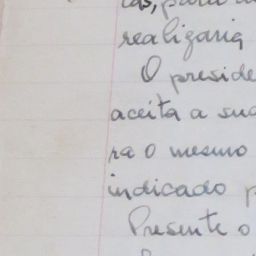 realizaria
O preside
aceita a sua
ra o mesmo
indicado p
Presente o